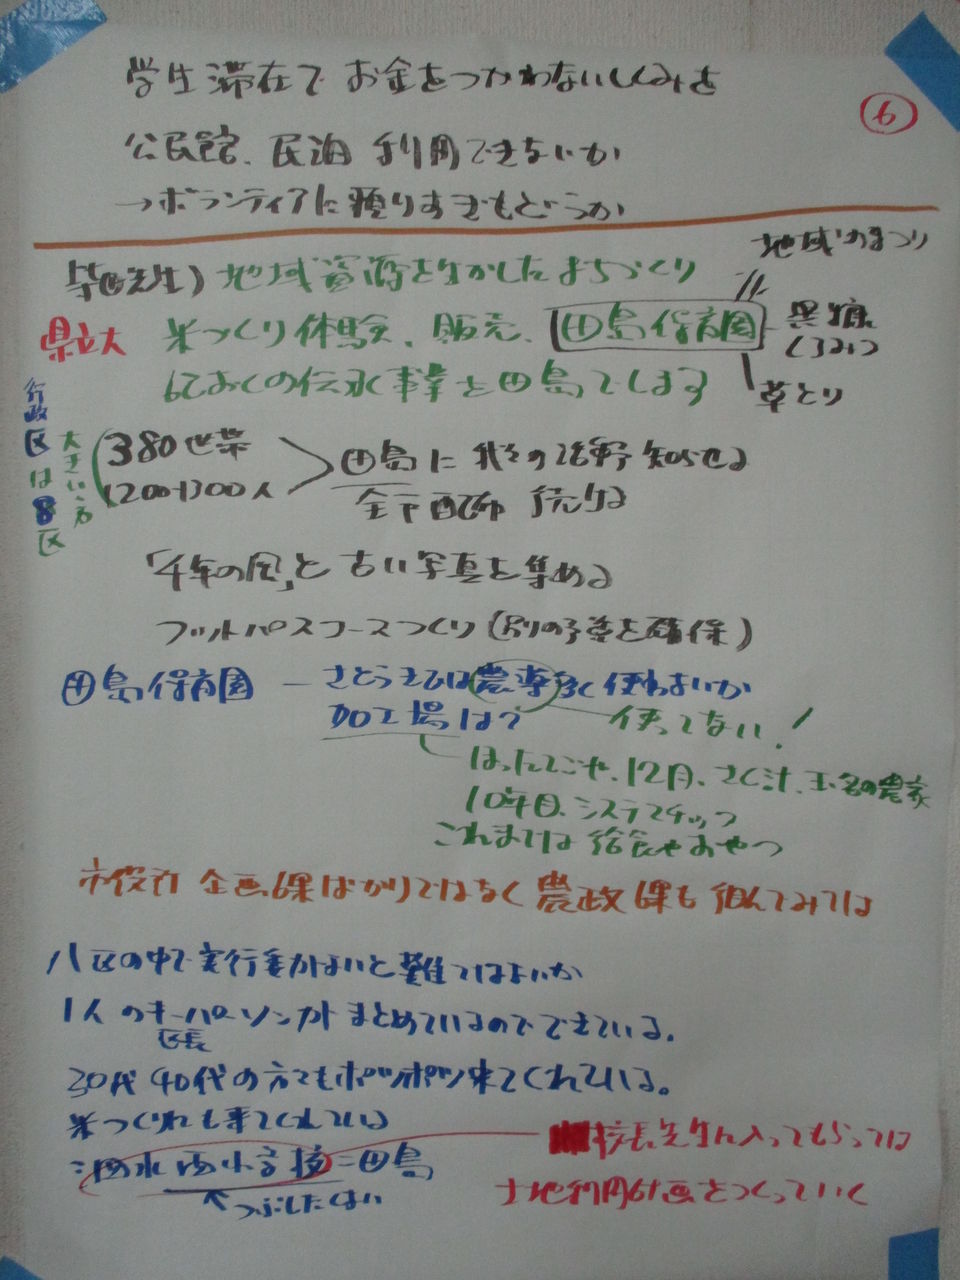 学生滞在でお金をつかわないしくみを
⑥
公民館、民泊 利用できないか
→ボランティアに頼りすぎもどうか
地域のまつり
先生) 地域資源を生かしたまちづくり
県立大 米づくり体験、販売、田島保育園
草とり
の伝承事業を田島でします
行政区は8区
大きい方
380世帯
1200~1300人
田島に我々の活動知らせる
全戸配布 続ける
「千年の風」と古い写真を集める
フットパスコースつくり(別の予算を確保)
田島保育園 ― さとうきびは農薬多く使わまいか
加工場は?
使ってない!
ほったてごや、12月、さく汁、玉名の農家
10年目、システマチック
これまでは給食やおやつ
市役所 企画課ばかりではなく農政課も組んでみては
八区の中で実行委がまいと難ではまいか
1人のキーパーソンがまとめているのでできている。
区長
30代40代の方でもポツポツ来てくれている。
米づくりにも来てくれている
泗水西小学校=田島
つぶしたくない
校長先生に入ってもらっては
土地利用計画をつくっていく